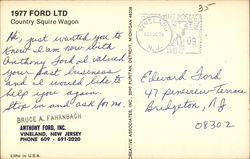 1977 FORD LTD
Country Squire Wagon
Hi, just wanted you to
know I am now with
Anthony Ford. I valued
your past business
and I would like to
help you again.
Stop in and ask for me.
BRUCE A. FAHRNBACH
ANTHONY FORD, INC.
VINELAND, NEW JERSEY
PHONE 609 - 691-2020
Litho in U.S.A.
CREATIVE ASSOCIATES, INC. PURITAN, DETROIT, MICHIGAN
35
09
Edward Ford
47
Bridgeton, NJ
08302